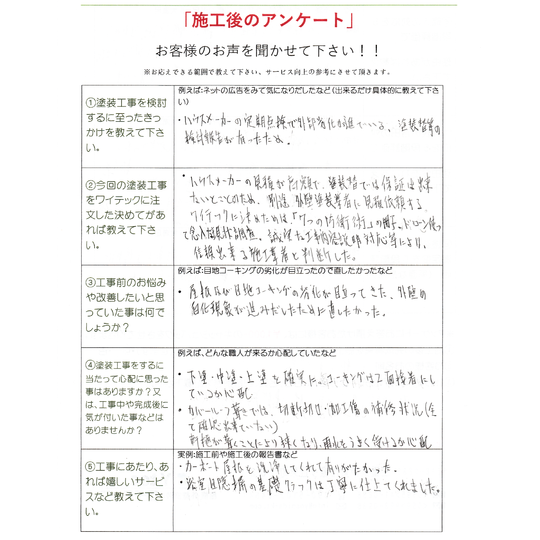 「施工後のアンケート」
お客様のお声を聞かせて下さい！！
※お応えできる範囲で教えて下さい、サービス向上の参考にさせて頂きます。
①塗装工事を検討
するに至ったきっ
かけを教えて下さ
い。
例えば:ネットの広告をみて気になりだしたなど（出来るだけ具体的に教えて下さ
い）
・ハウスメーカーの定期点検で外部劣化が進んでいる、塗装替等の
検討報告が有ったため。
②今回の塗装工事
をワイテックに注
文した決めてがあ
れば教えて下さ
い。
・ハウスメーカーの見積が高額で、塗装替では保証は出来
ないとのことのため、別途、外壁塗装業者に見積依頼する
ワイテックに決めたのは「7つの防衛術」の冊子、ドローン使っ
て念入な現地調査、誠実な工事内容説明対応等により、
信頼出来る施工業者と判断した。
③工事前のお悩み
や改善したいと思
っていた事は何で
しょうか？
例えば:目地コーキングの劣化が目立ったので直したかったなど
・屋根及び目地コーキングの劣化が目立ってきた、外壁の
白化現象が進みだしたために直したかった。
④塗装工事をするに
当たって心配に思った
事はありますか？又
は、工事中や完成後に
気が付いた事などは
ありませんか？
例えば、どんな職人が来るか心配していたなど
・下塗・中塗・上塗を確実に、コーキングは2面接着にし
ているか心配
・カバールーフ葺きでは、切断切口・加工傷の補修状況（全
て確認出来ていない）
⑤工事にあたり、あ
れば嬉しいサービ
スなど教えて下さ
い。
実例:施工前や施工後の報告書など
・カーポート屋根を洗浄してくれて有りがたかった。
・浴室目隠し塀の基礎クラックは丁寧に仕上てくれました。